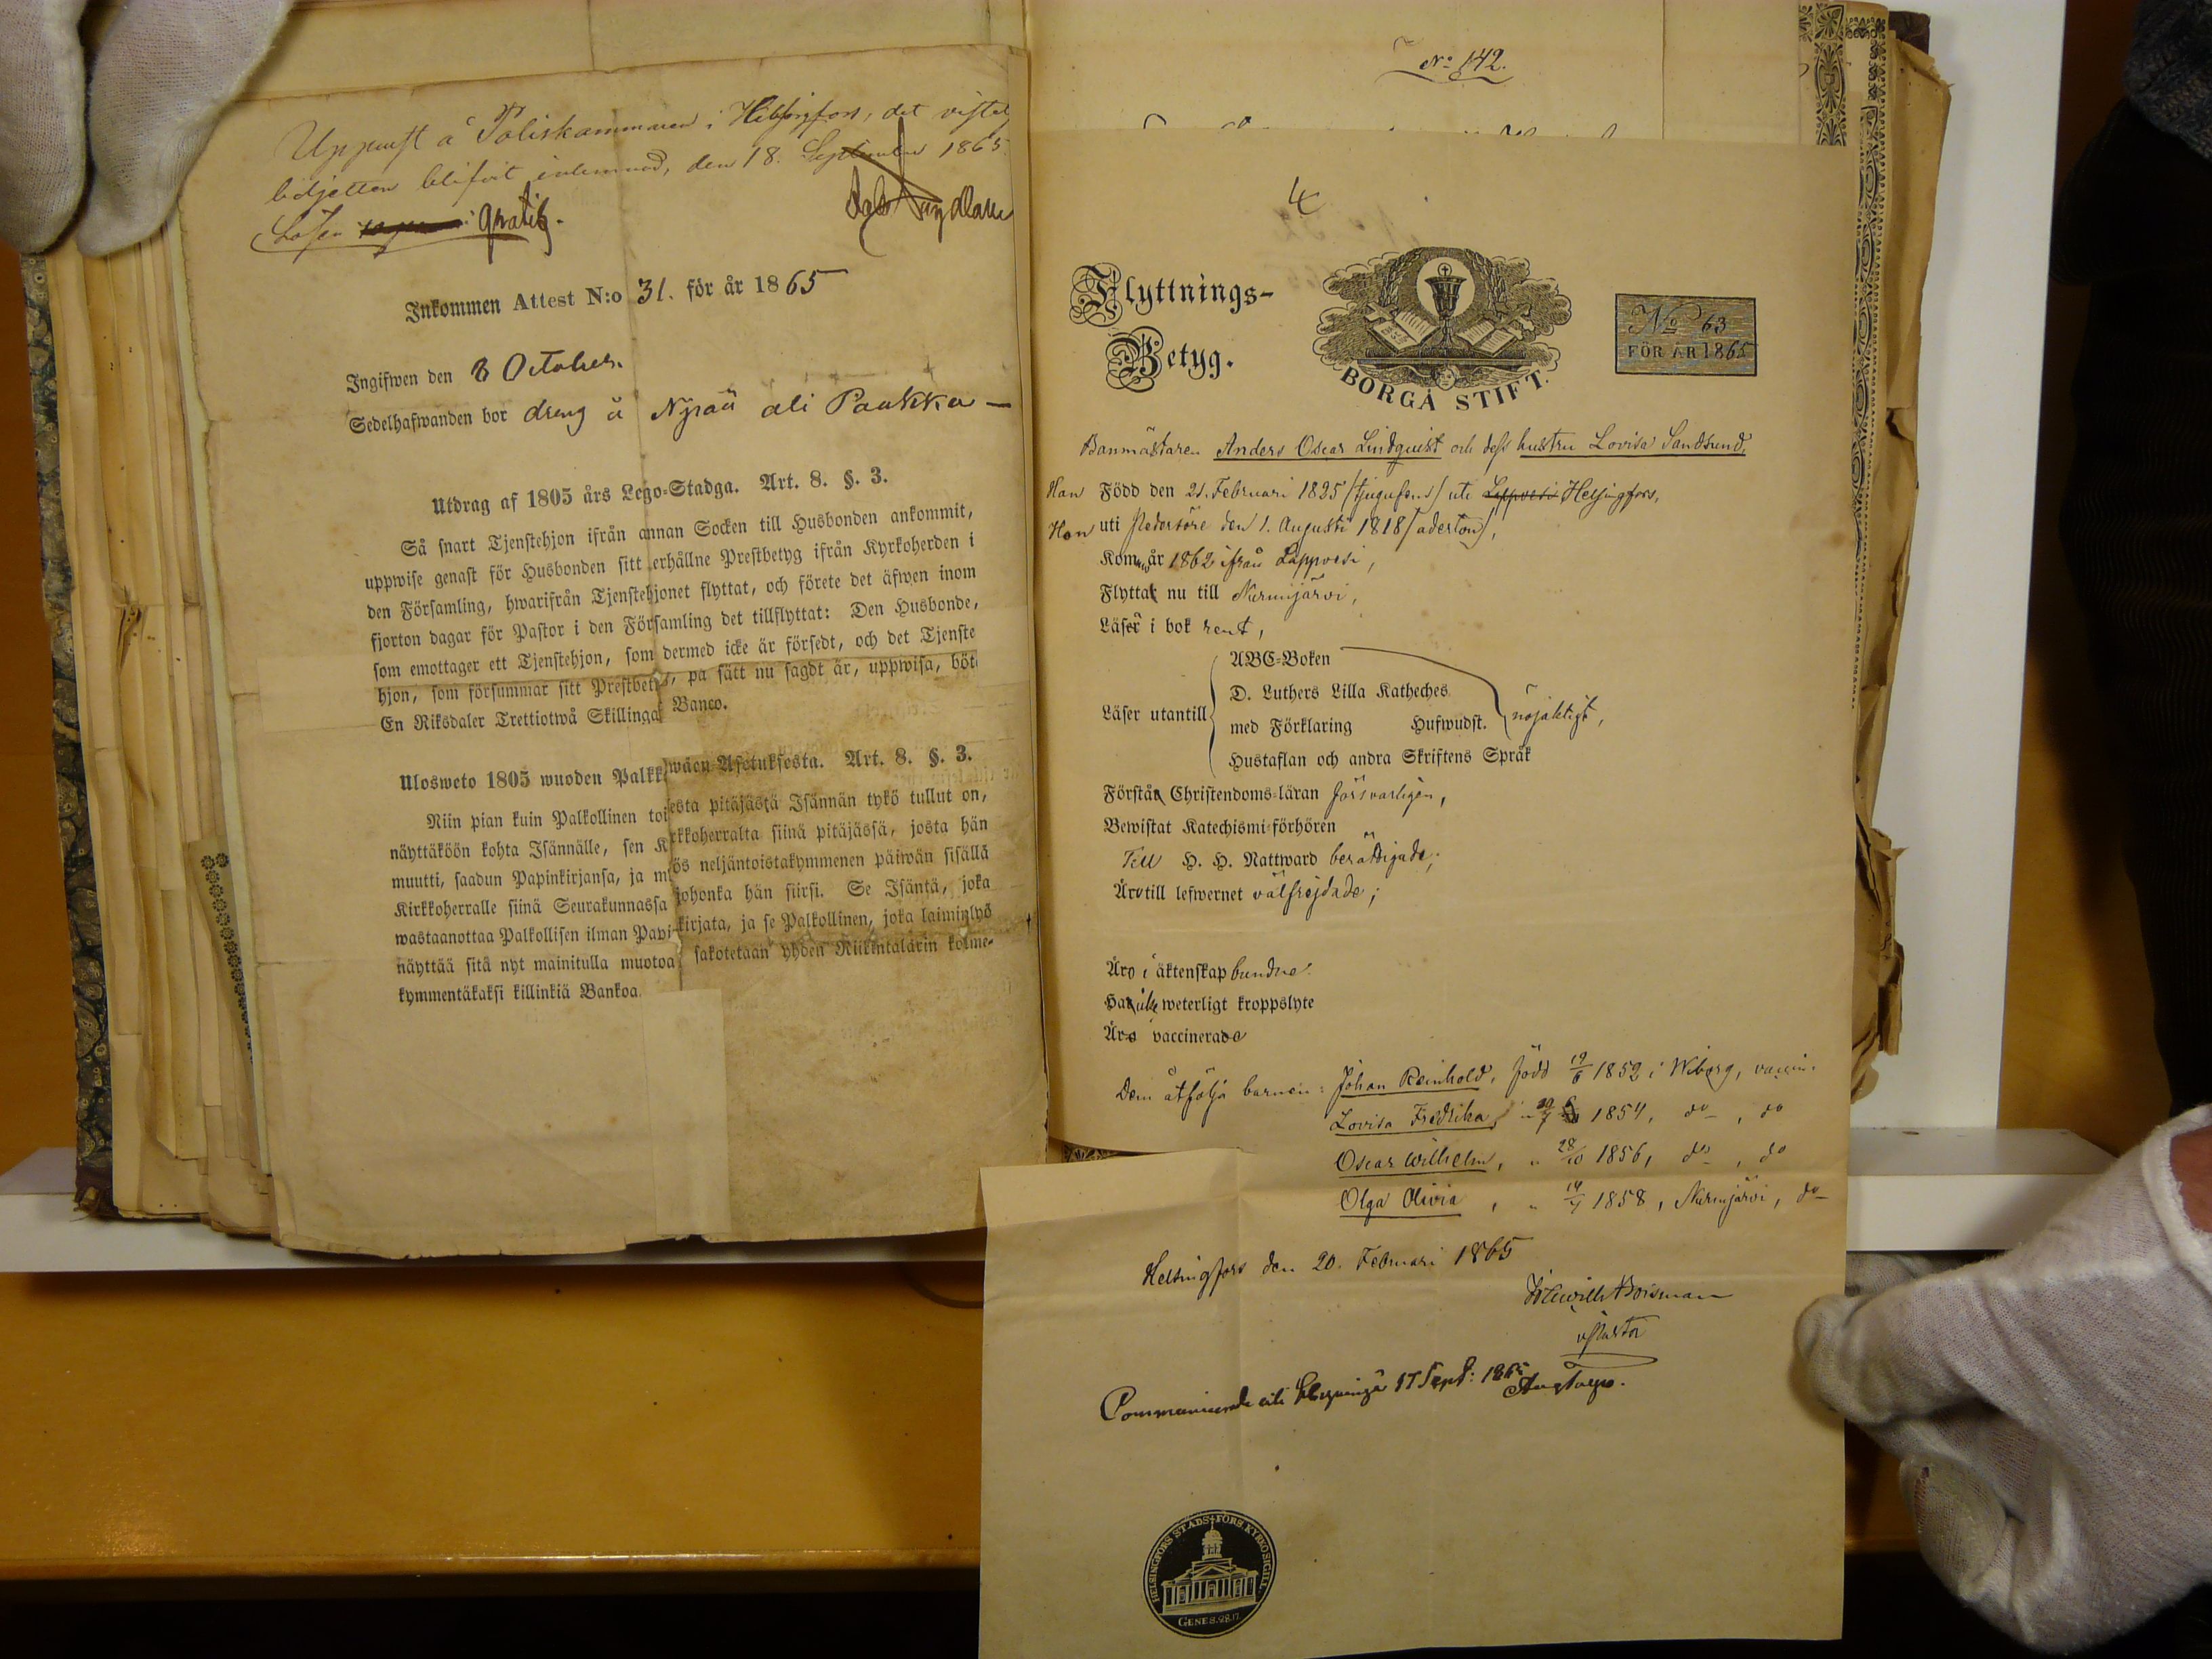 Uppvist å Poliskammaren i Helsingfors, det
blifvit inlemnad, den 18. September 1865.
Lösen gratis.
Inkommen Attest N:o 31. för år 1865
Ingifwen den 8 October.
Sedelhafwanden bor dreng å Nyraü ali Paukku —
Utdrag af 1805 års Lego-Stadga. Art. 8. §. 3.
Så snart Tjenstehjon ifrån annan Socken till Husbonden ankommit,
uppwise genast för Husbonden sitt erhållne Prestbetyg ifrån Kyrkoherden i
den Församling, hwarifrån Tjenstehjonet flyttat, och förete det äfwen inom
fjorton dagar för Pastor i den Församling det tillflyttat: Den Husbonde,
som emottager ett Tjenstehjon, som dermed icke är försedt, och det Tjenste
hjon, som försummar sitt Prestbetyg, på sätt nu sagdt är, uppwisa, böte
En Riksdaler Trettiotwå Skillingar Banco.
Ulosweto 1805 wuoden Palkkawäen Asetuksesta. Art. 8. §. 3.
Niin pian kuin Palkollinen toisesta pitäjästä Isännän tykö tullut on,
näyttäköön kohta Isännälle, sen Kirkkoherralta siinä pitäjässä, josta hän
muutti, saadun Papinkirjansa, ja myös neljäntoistakymmenen päiwän sisällä
Kirkkoherralle siinä Seurakunnassa johonka hän siirsi. Se Isäntä, joka
wastaanottaa Palkollisen ilman Papinkirjata, ja se Palkollinen, joka laiminlyö
näyttää sitä nyt mainitulla muotoa, sakotetaan yhden Riikintalarin kolme-
kymmentäkaksi killinkiä Bankoa.
No 142.
4
Flyttnings-
Betyg.
BORGÅ STIFT.
No 63
FÖR ÅR 1865
Banmästaren Anders Oscar Lindquist och dess hustru Lovisa Sandsund,
Han Född den 21. Februari 1825 /tjugufem/ uti Lappvesi Helsingfors,
Hon uti Pedersöre den 1. Augusti 1818 /aderton/,
Kommo år 1862 ifrån Lappvesi,
Flytta nu till Nurmijärvi,
Läser i bok rent,
ABC-Boken
D. Luthers Lilla Katheches.
Läser utantill
med Förklaring Hufwudst. nöjaktigt,
Hustaflan och andra Skriftens Språk
Förstå Christendoms-läran försvarligen,
Bewistat Katechismi-förhören
Till H. H. Nattward berättigade;
Äro till lefwernet välfrejdade;
Äro i äktenskap bundne.
Ha icke weterligt kroppslyte
Äro vaccinerade
Dem åtfölja barnen: Johan Reinhold, född 19/6 1852 i Wiborg, vaccin.
Lovisa Fredrika, " 1854, do, do
Oscar Wilhelm, " 28/10 1856, do, do
Olga Olivia, " 14/4 1858, Nurmijärvi, do
Helsingfors den 20. Februari 1865
v. Pastor
Communicerade uti 17 Sept: 1865
HELSINGFORS STADS FÖRS. KYRKO SIGILL.
GENES. 28.17